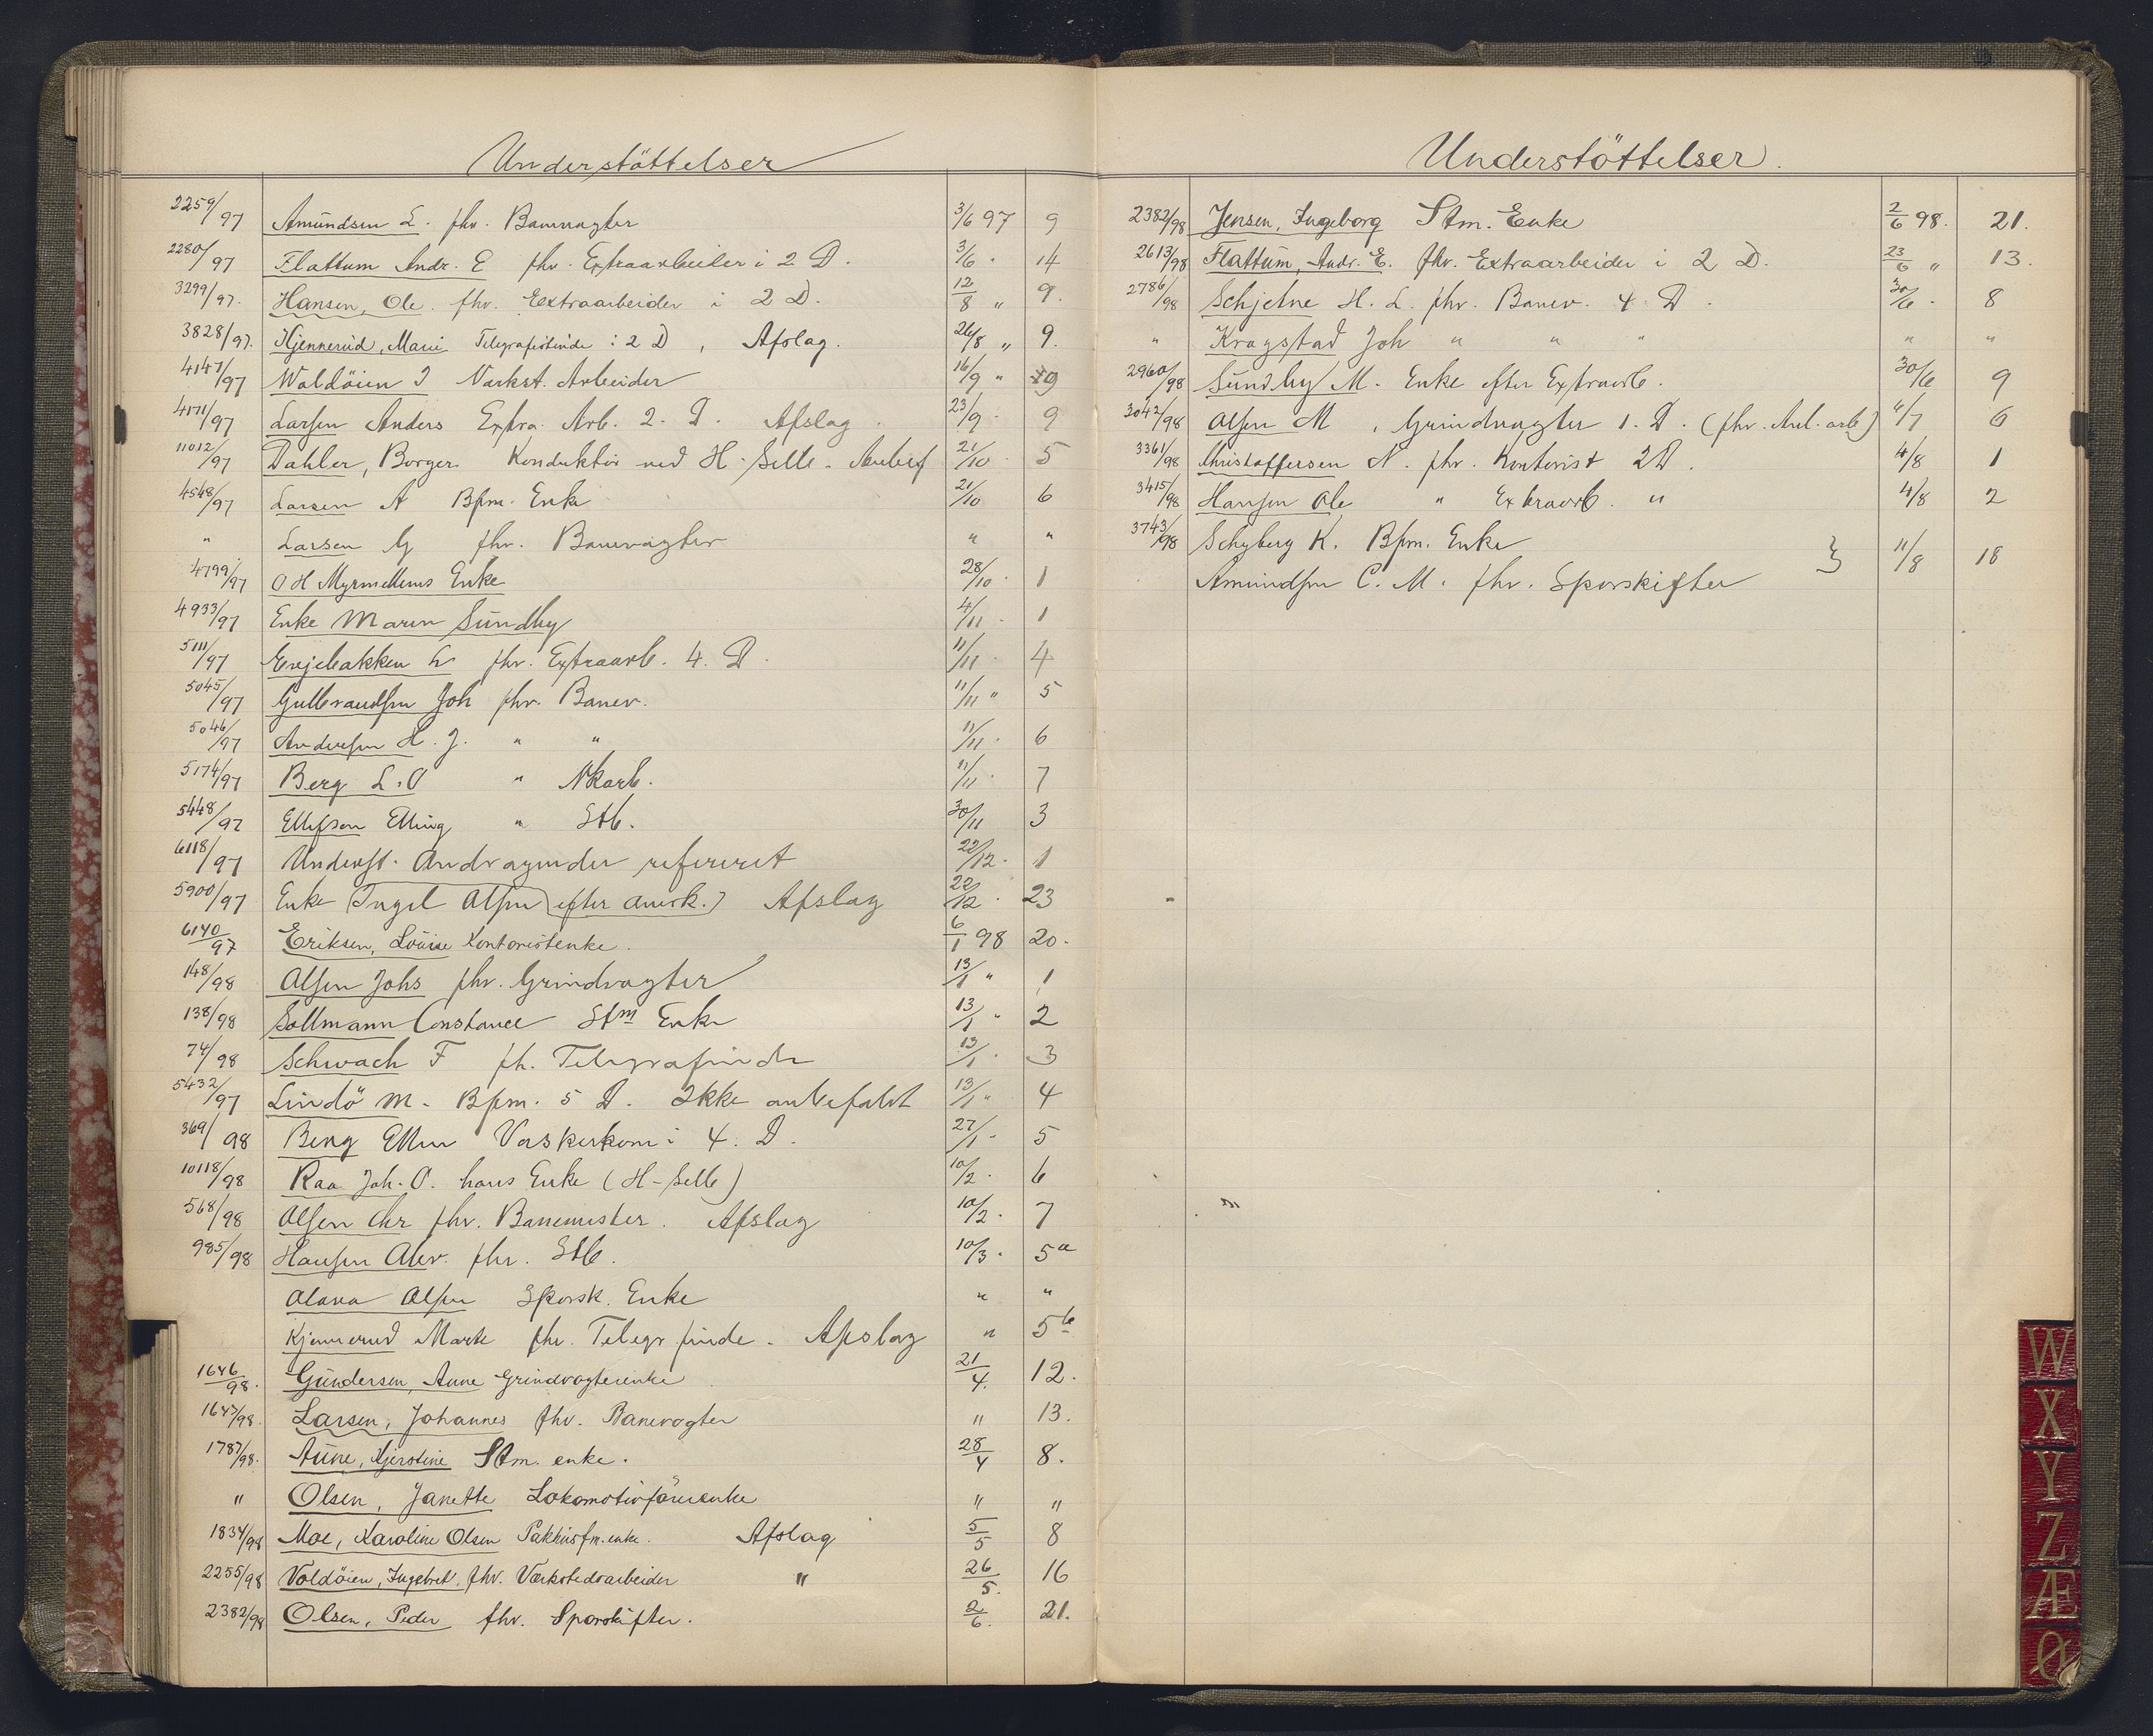 Understöttelser
2259/97 Amundsen L. fhv. Banevagter 3/6 97 9
2280/97 Flattum Andr. E fhv. Extraarbeider i 2 D. 3/6 14
3299/97. Hansen, Ole. fhv. Extraarbeider i 2 D. 12/8 " 9.
3828/97. Kjennerud, Marie Telegrafistinde i 2 D, Afslag. 26/8 " 9.
4147/97 Woldöien I Værkst. Arbeider 16/9 " 19
4171/97 Larsen Anders Extra. Arb. 2. D. Afslag. 23/9 9
11012/97 Dahler, Borger Konduktör ved H-Selb. Anbef 21/10 5
4548/97 Larsen A Bfm. Enke 21/10 6
" Larsen G fhv. Banevagter " "
4799/97 O H Enke 28/10 1
4933/97 Enke Maren Sundby 4/11 1
5111/97 Evjebakken L fhv. Extraarb. 4. D. 11/11 4
5045/97 Gulbrandsen Joh fhv. Banev. 11/11 " 5
5046/97 Andersen H. J. " " 11/11 6
5174/97 Berg L. O " 11/11 7
5448/97 Ellefsen Elling " Stb. 30/11 3
6118/97 Underst. Andragender refereret 22/12 1
5900/97 Enke Olsen Afslag 22/12 23
6140/97 Eriksen, Louise Kontoristenke. 6/1 98 20.
148/98 Olsen Johs fhv. Grindvagter 13/1 " 1
138/98 Sollmann Constance Stm Enke 13/1 " 2
74/98 Schwach F fh. Telegrafinde 13/1 3
5432/97 Lindö M. Bfm. 5 D. Ikke anbefalet 13/1 " 4
369/98 Berg Ellen Vaskerkone i 4. D. 27/1 5
10118/98 Raa Joh. O. hans Enke (H-Selb) 10/2 6
568/98 Olsen Chr fhv. Banemester. Afslag 10/2 7
985/98 Hansen fhv. Stb. 10/3 5a
Olava Olsen Sporsk. Enke " "
Kjennerud Marte fhv. Telegrafinde. Afslag " 5b
1646/98. Gundersen, Anne Grindvogterenke 21/4. 12.
1647/98. Larsen, Johannes fhv. Banevogter " 13.
1787/98. Aune, Kjerstine Stm. enke. 28/4 8.
" Olsen, Janette Lokomotivförerenke " "
1834/98 Moe, Karoline Olsen Pakhusfm. enke. Afslag 5/5 8
2255/98 Voldöien, Ingebret. fhv. Værkstedsarbeider " 26/5. 16
2382/98 Olsen, Peder fhv. Sporskifter. 2/6. 21.
Understöttelser.
2382/98 Jensen, Ingeborg Stm. Enke 2/6 98. 21.
2613/98 Flattum, Andr. E. fhv. Extraarbeider i 2 D. 23/6 " 13.
2786/98 Schjetne H. L. fhv. Banev. 4 D. 30/6 8
" Kragstad Joh " " " " "
2960/98 Sundby M. Enke efter Extraarb. 30/6 9
3042/98 Olsen M, Grindvagter 1. D. (fhv. Anl. arb) /7 6
3361/98 Christoffersen N. fhv. Kontorist 2 D. 4/8 1
3415/98 Hansen Ole " Extraarb. " 4/8 2
3743/98 Schyberg K. Bfm. Enke } 11/8 18
Amundsen C. M. fhv. Sporskifter
W
X
Y
Z
Æ
Ø